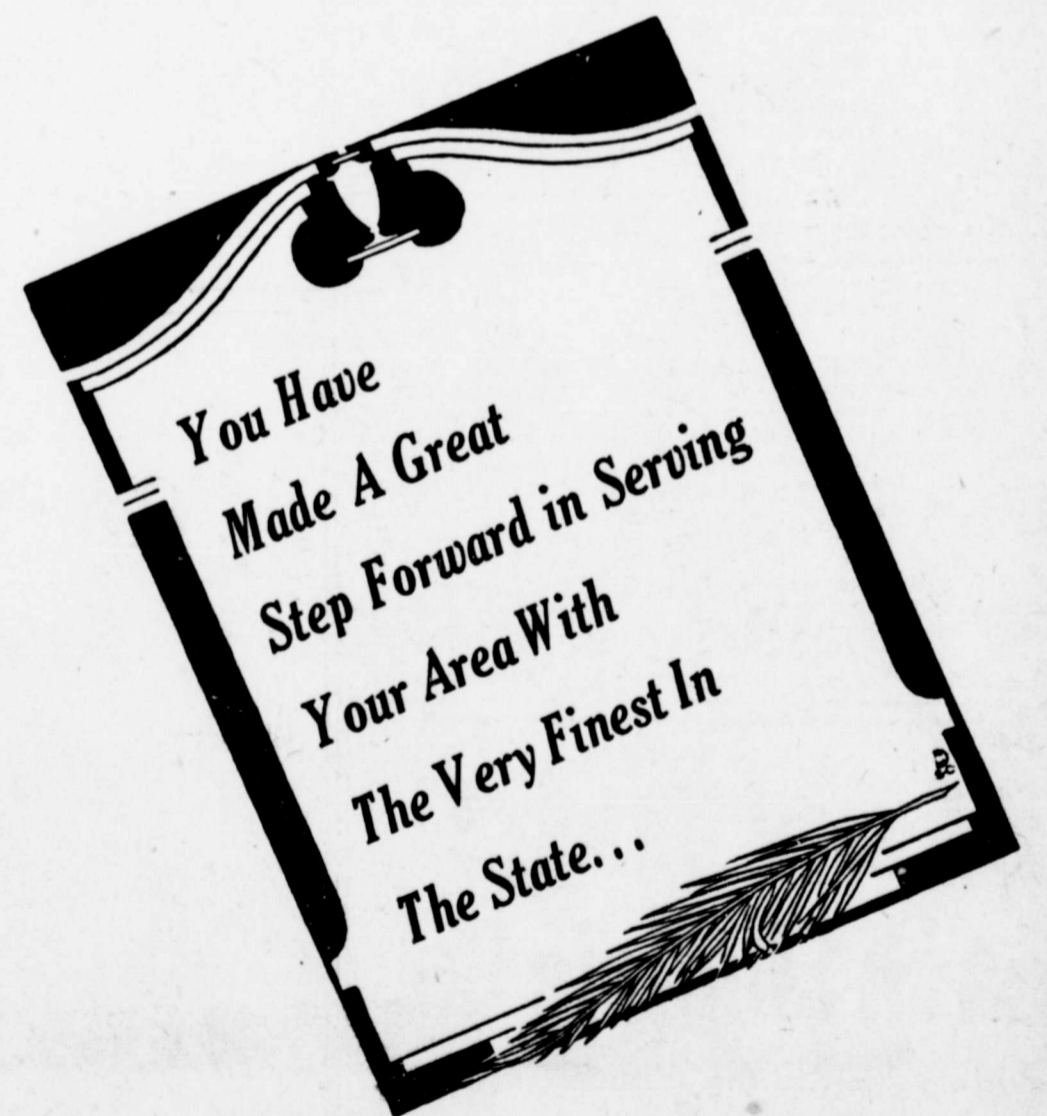 You Have
Made A Great
Step Forward in Serving
Your Area With
The Very Finest In
The State...